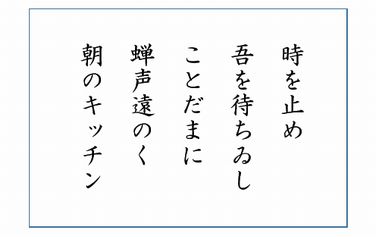 時を止め
吾を待ちゐし
ことだまに
蝉声遠のく
朝のキッチン